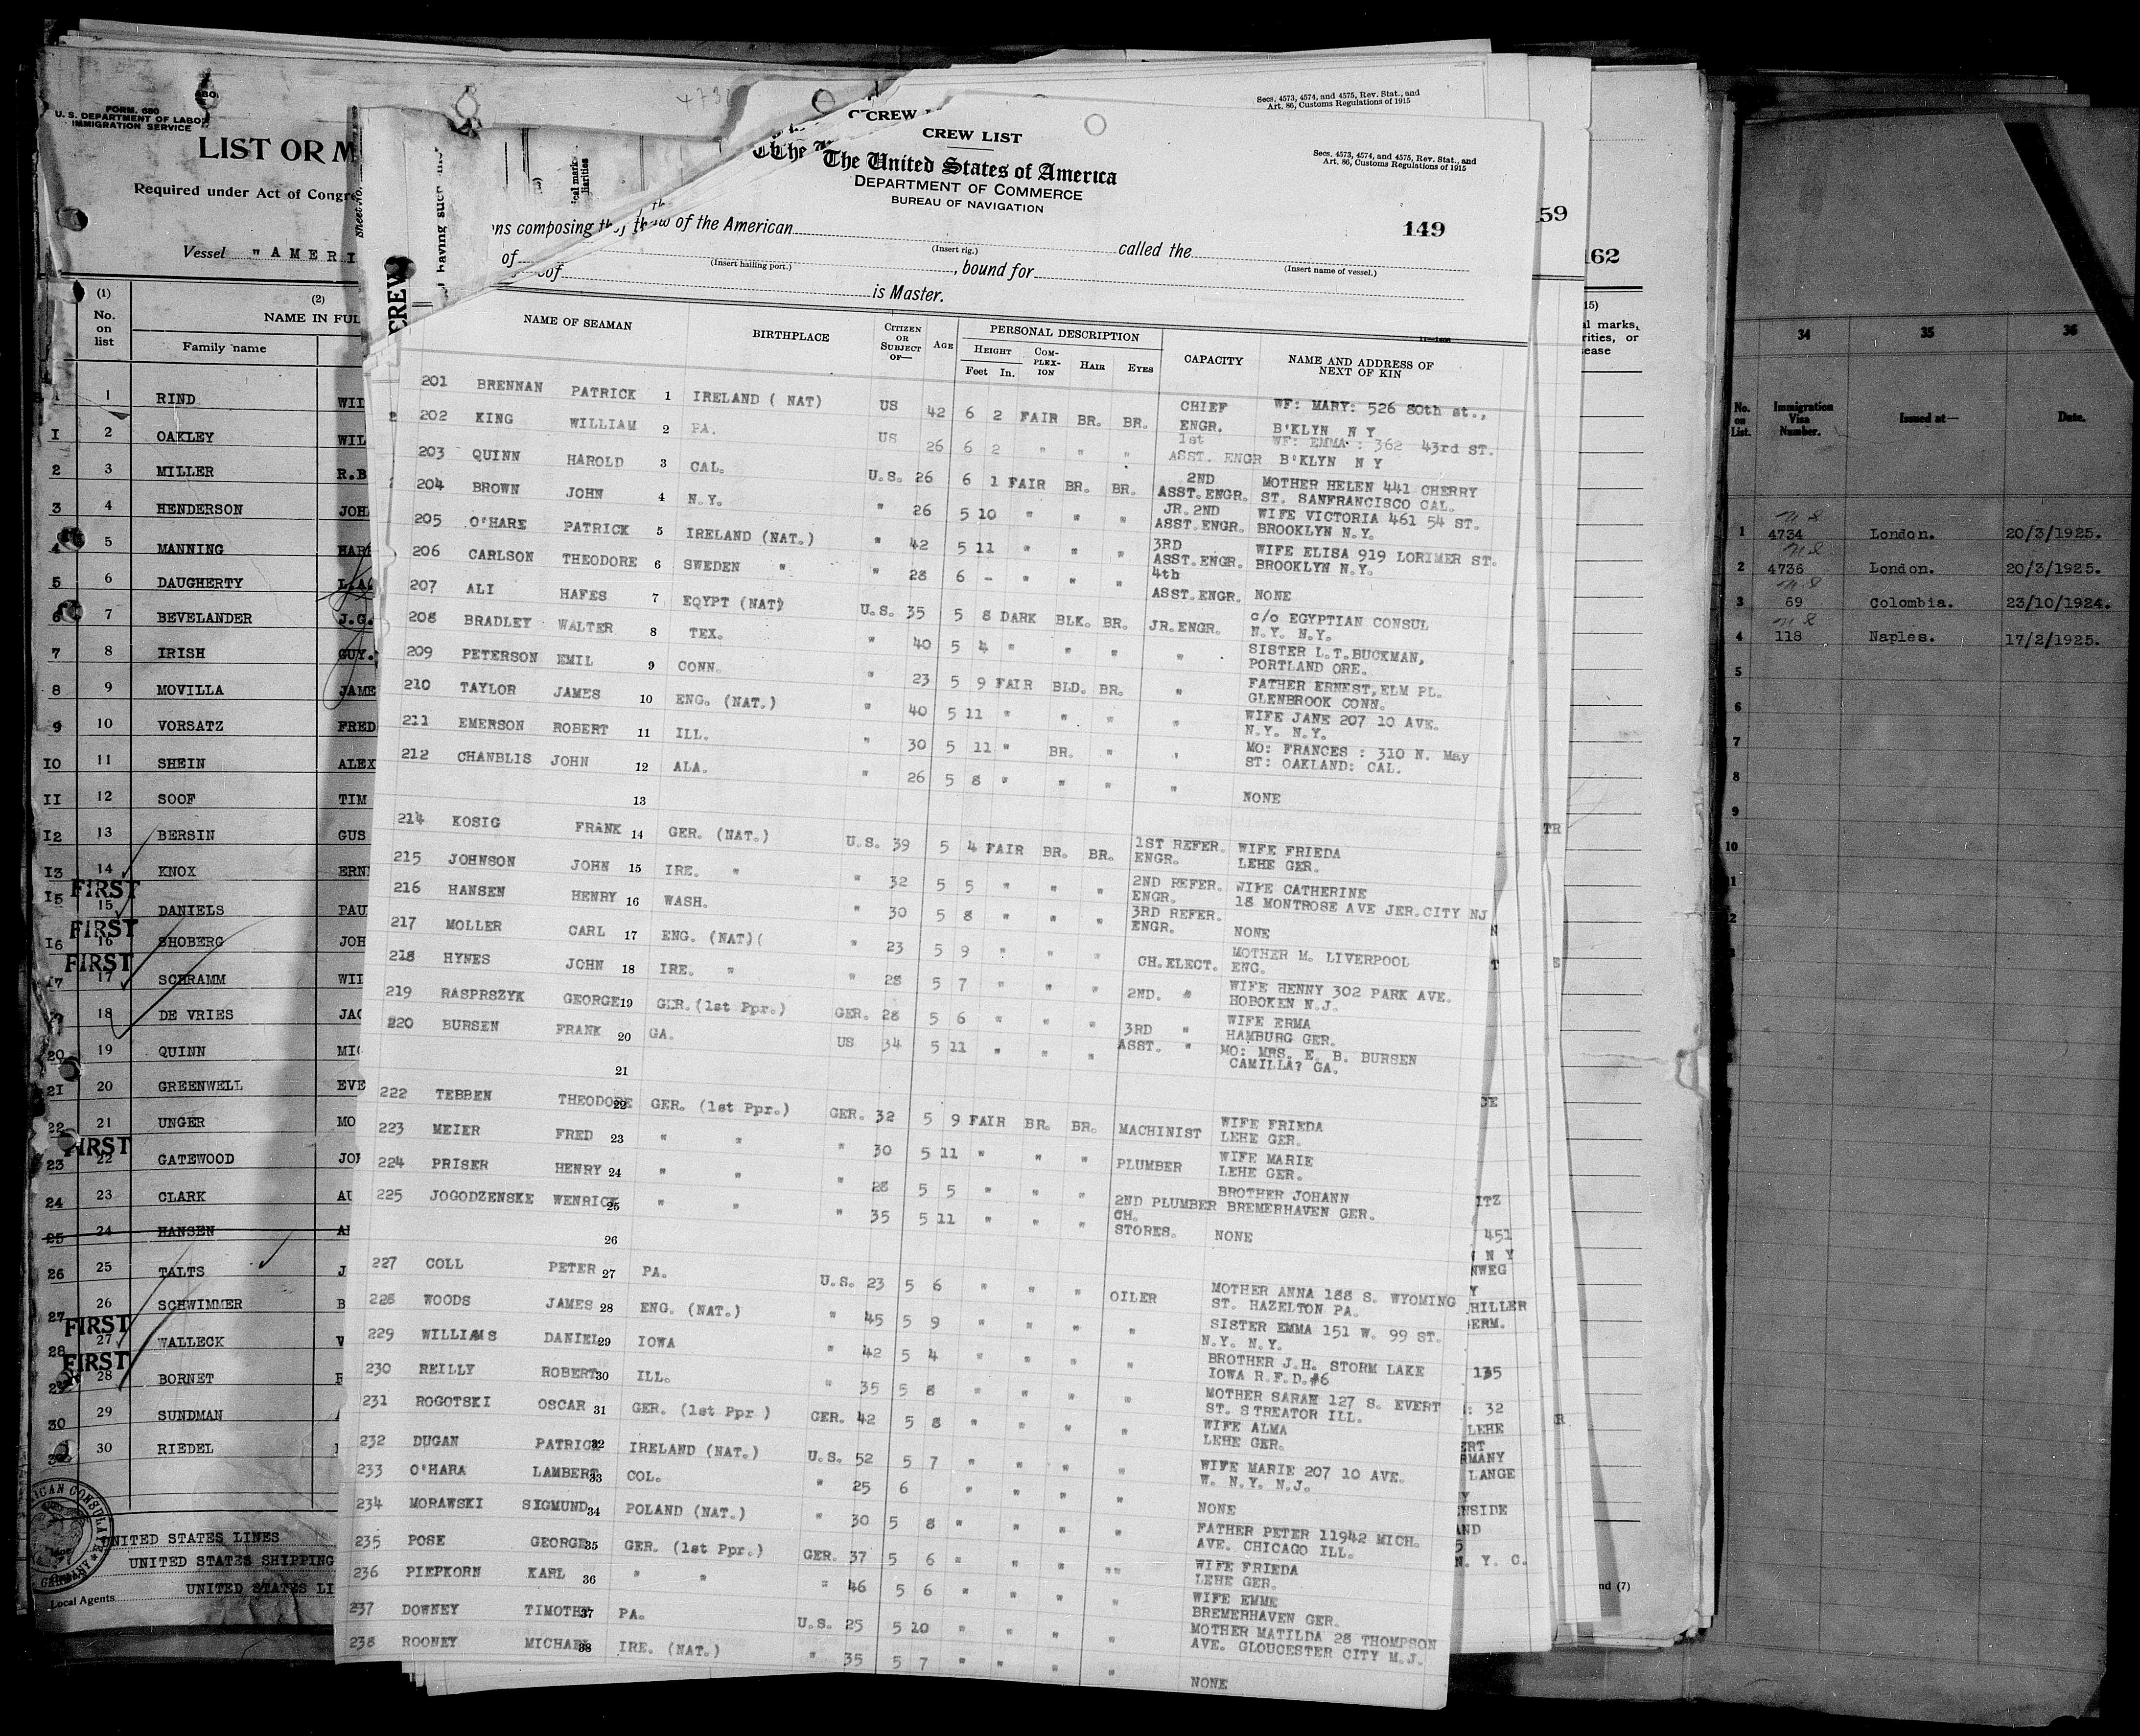 FORM. 680
U. S. DEPARTMENT OF LABOR
IMMIGRATION SERVICE
LIST OR M
Required under Act of Congre
Vessel "AMERI
(1) (2)
No. on list
NAME IN FUL
Family name
1 RIND WIL
2 OAKLEY WIL
3 MILLER R.B
4 HENDERSON JOH
5 MANNING HAR
6 DAUGHERTY L.A.
7 BEVELANDER J.G.
8 IRISH GUY.
9 MOVILLA JAME
10 VORSATZ FRED
11 SHEIN ALEX
12 SOOF TIM
13 BERSIN GUS
14 KNOX ERN
FIRST
15 DANIELS PAU
FIRST
16 SHOBERG JOH
FIRST
17 SCHRAMM WIL
18 DE VRIES JAC
19 QUINN MIC
20 GREENWELL EVE
21 UNGER MO
22 GATEWOOD JOH
23 CLARK AU
24 HANSEN
25 TALTS J
26 SCHWIMMER B
FIRST
27 WALLECK
FIRST
28 BORNET
29 SUNDMAN
30 RIEDEL
UNITED STATES LINES
UNITED STATES SHIPPING
UNITED STATES LI
Local Agents
Secs. 4573, 4574, and 4575, Rev. Stat., and
Art. 86, Customs Regulations of 1915
CREW LIST
The United States of America
DEPARTMENT OF COMMERCE
BUREAU OF NAVIGATION
Secs. 4573, 4574, and 4575, Rev. Stat., and
Art. 86, Customs Regulations of 1915
149
ons composing the crew of the American (Insert rig.) called the (Insert name of vessel.)
of (Insert hailing port.), bound for
is Master.
CREW
NAME OF SEAMAN BIRTHPLACE CITIZEN OR SUBJECT OF— AGE PERSONAL DESCRIPTION CAPACITY NAME AND ADDRESS OF NEXT OF KIN
HEIGHT Feet In. COMPLEXION HAIR EYES
201 BRENNAN PATRICK 1 IRELAND ( NAT) US 42 6 2 FAIR BR. BR. CHIEF ENGR. WF: MARY: 526 80th st., B'KLYN N Y
202 KING WILLIAM 2 PA. US 26 6 2 " " " 1st ASST. ENGR WF: EMMA : 362 43rd ST. B'KLYN N Y
203 QUINN HAROLD 3 CAL. U.S. 26 6 1 FAIR BR. BR. 2ND ASST.ENGR. MOTHER HELEN 441 CHERRY ST. SANFRANCISCO CAL.
204 BROWN JOHN 4 N.Y. " 26 5 10 " " " JR.2ND ASST.ENGR. WIFE VICTORIA 461 54 ST. BROOKLYN N.Y.
205 O'HARE PATRICK 5 IRELAND (NAT.) " 42 5 11 " " " 3RD ASST.ENGR. WIFE ELISA 919 LORIMER ST. BROOKLYN N.Y.
206 CARLSON THEODORE 6 SWEDEN " " 28 6 - " " " 4th ASST.ENGR. NONE
207 ALI HAFES 7 EQYPT (NAT) U.S. 35 5 8 DARK BLK. BR. JR.ENGR. c/o EGYPTIAN CONSUL N.Y. N.Y.
208 BRADLEY WALTER 8 TEX. " 40 5 4 " " " " SISTER L.T.BUCKMAN, PORTLAND ORE.
209 PETERSON EMIL 9 CONN. " 23 5 9 FAIR BLD. BR. " FATHER ERNEST,ELM PL. GLENBROOK CONN.
210 TAYLOR JAMES 10 ENG. (NAT.) " 40 5 11 " " " " WIFE JANE 207 10 AVE. N.Y. N.Y.
211 EMERSON ROBERT 11 ILL. " 30 5 11 " BR. " " MO: FRANCES : 310 N. May ST: OAKLAND: CAL.
212 CHANBLIS JOHN 12 ALA. " 26 5 8 " " " " NONE
13
214 KOSIG FRANK 14 GER. (NAT.) U.S. 39 5 4 FAIR BR. BR. 1ST REFER. ENGR. WIFE FRIEDA LEHE GER.
215 JOHNSON JOHN 15 IRE. " " 32 5 5 " " " 2ND REFER. ENGR. WIFE CATHERINE 18 MONTROSE AVE JER.CITY NJ
216 HANSEN HENRY 16 WASH. " 30 5 8 " " " 3RD REFER. ENGR. NONE
217 MOLLER CARL 17 ENG. (NAT)( " 23 5 9 " " " CH.ELECT. MOTHER M. LIVERPOOL ENG.
218 HYNES JOHN 18 IRE. " " 28 5 7 " " " 2ND. " WIFE HENNY 302 PARK AVE. HOBOKEN N.J.
219 RASPRSZYK GEORGE 19 GER.(1st Ppr.) GER. 28 5 6 " " " 3RD " WIFE ERMA HAMBURG GER.
220 BURSEN FRANK 20 GA. US 34 5 11 " " " ASST. " MO: MRS. E. B. BURSEN CAMILLA? GA.
21
222 TEBBEN THEODORE 22 GER. (1st Ppr.) GER. 32 5 9 FAIR BR. BR. MACHINIST WIFE FRIEDA LEHE GER.
223 MEIER FRED 23 " " " 30 5 11 " " " PLUMBER WIFE MARIE LEHE GER.
224 PRISER HENRY 24 " " " 28 5 5 " " " 2ND PLUMBER BROTHER JOHANN BREMERHAVEN GER.
225 JOGODZENSKE WENRICK 25 " " " 35 5 11 " " " CH. STORES. NONE
26
227 COLL PETER 27 PA. U.S. 23 5 6 " " " OILER MOTHER ANNA 188 S. WYOMING ST. HAZELTON PA.
228 WOODS JAMES 28 ENG. (NAT.) " 45 5 9 " " " " SISTER EMMA 151 W. 99 ST. N.Y. N.Y.
229 WILLIAMS DANIEL 29 IOWA " 42 5 4 " " " " BROTHER J.H. STORM LAKE IOWA R.F.D.#6
230 REILLY ROBERT 30 ILL. " 35 5 8 " " " " MOTHER SARAH 127 S. EVERT ST. STREATOR ILL.
231 ROGOTSKI OSCAR 31 GER. (1st Ppr ) GER. 42 5 8 " " " " WIFE ALMA LEHE GER.
232 DUGAN PATRICK 32 IRELAND (NAT.) U.S. 52 5 7 " " " " WIFE MARIE 207 10 AVE. W. N.Y. N.J.
233 O'HARA LAMBERT 33 COL. " 25 6 " " " " NONE
234 MORAWSKI SIGMUND 34 POLAND (NAT.) " 30 5 8 " " " " FATHER PETER 11942 MICH. AVE. CHICAGO ILL.
235 POSE GEORGE 35 GER. (1st Ppr.) GER. 37 5 6 " " " " WIFE FRIEDA LEHE GER.
236 PIEPKORN KARL 36 " " " 46 5 6 " " " " WIFE EMME BREMERHAVEN GER.
237 DOWNEY TIMOTHY 37 PA. U.S. 25 5 10 " " " " MOTHER MATILDA 28 THOMPSON AVE. GLOUCESTER CITY M.J.
238 ROONEY MICHAEL 38 IRE. (NAT.) " 35 5 7 " " " " NONE
59
162
15)
al marks,
rities, or
sease
TR
ITZ
451
N Y
NWEG
HILLER
ERM.
135
: 32
LEHE
ERT
RMANY
LANGE
ENSIDE
AND
N. Y. C.
nd (7)
34 35 36
No. on List. Immigration Visa Number. Issued at— Date.
1 4734 London. 20/3/1925.
2 4736 London. 20/3/1925.
3 69 Colombia. 23/10/1924.
4 118 Naples. 17/2/1925.
5
6
7
8
9
10